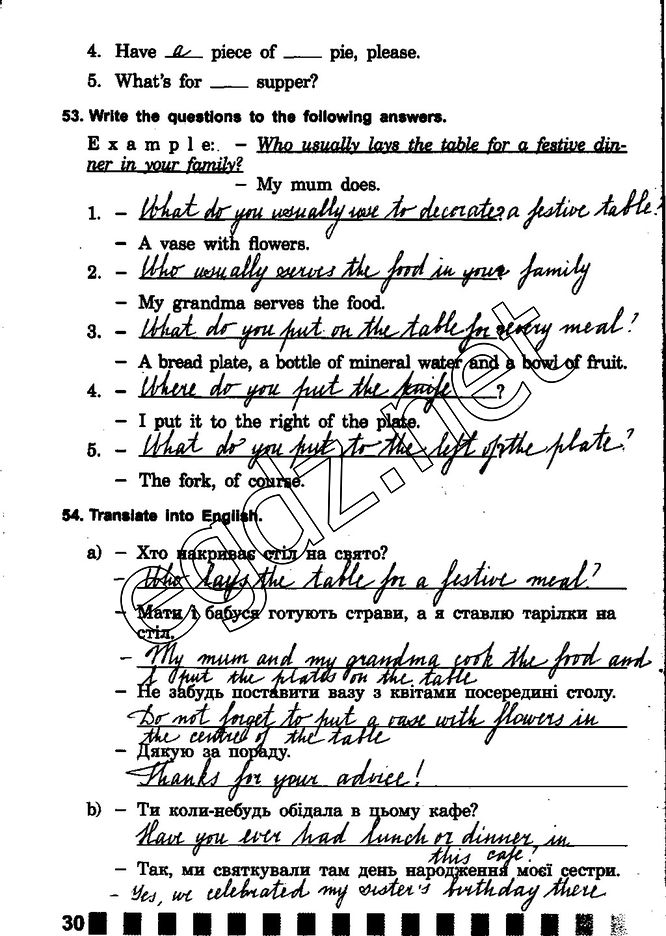 4. Have a piece of ___ pie, please.
5. What's for ___ supper?
53. Write the questions to the following answers.
E x a m p l e: – Who usually lays the table for a festive din-
ner in your family?
– My mum does.
1. – What do you usually use to decorate a festive table?
– A vase with flowers.
2. – Who usually serves the food in your family
– My grandma serves the food.
3. – What do you put on the table for every meal?
– A bread plate, a bottle of mineral water and a bowl of fruit.
4. – Where do you put the knife ?
– I put it to the right of the plate.
5. – What do you put to the left of the plate?
– The fork, of course.
54. Translate into English.
a) – Хто накриває стіл на свято?
– Who lays the table for a festive meal?
– Мати і бабуся готують страви, а я ставлю тарілки на
стіл.
– My mum and my grandma cook the food and
I put the plates on the table
– Не забудь поставити вазу з квітами посередині столу.
Do not forget to put a vase with flowers in
the centre of the table
– Дякую за пораду.
Thanks for your advice!
b) – Ти коли-небудь обідала в цьому кафе?
Have you ever had lunch or dinner in
this cafe?
– Так, ми святкували там день народження моєї сестри.
– Yes, we celebrated my sister's birthday there
30
egdz.net